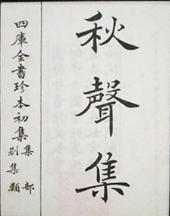 秋聲集
四庫全書珍本初集
集部
別集類